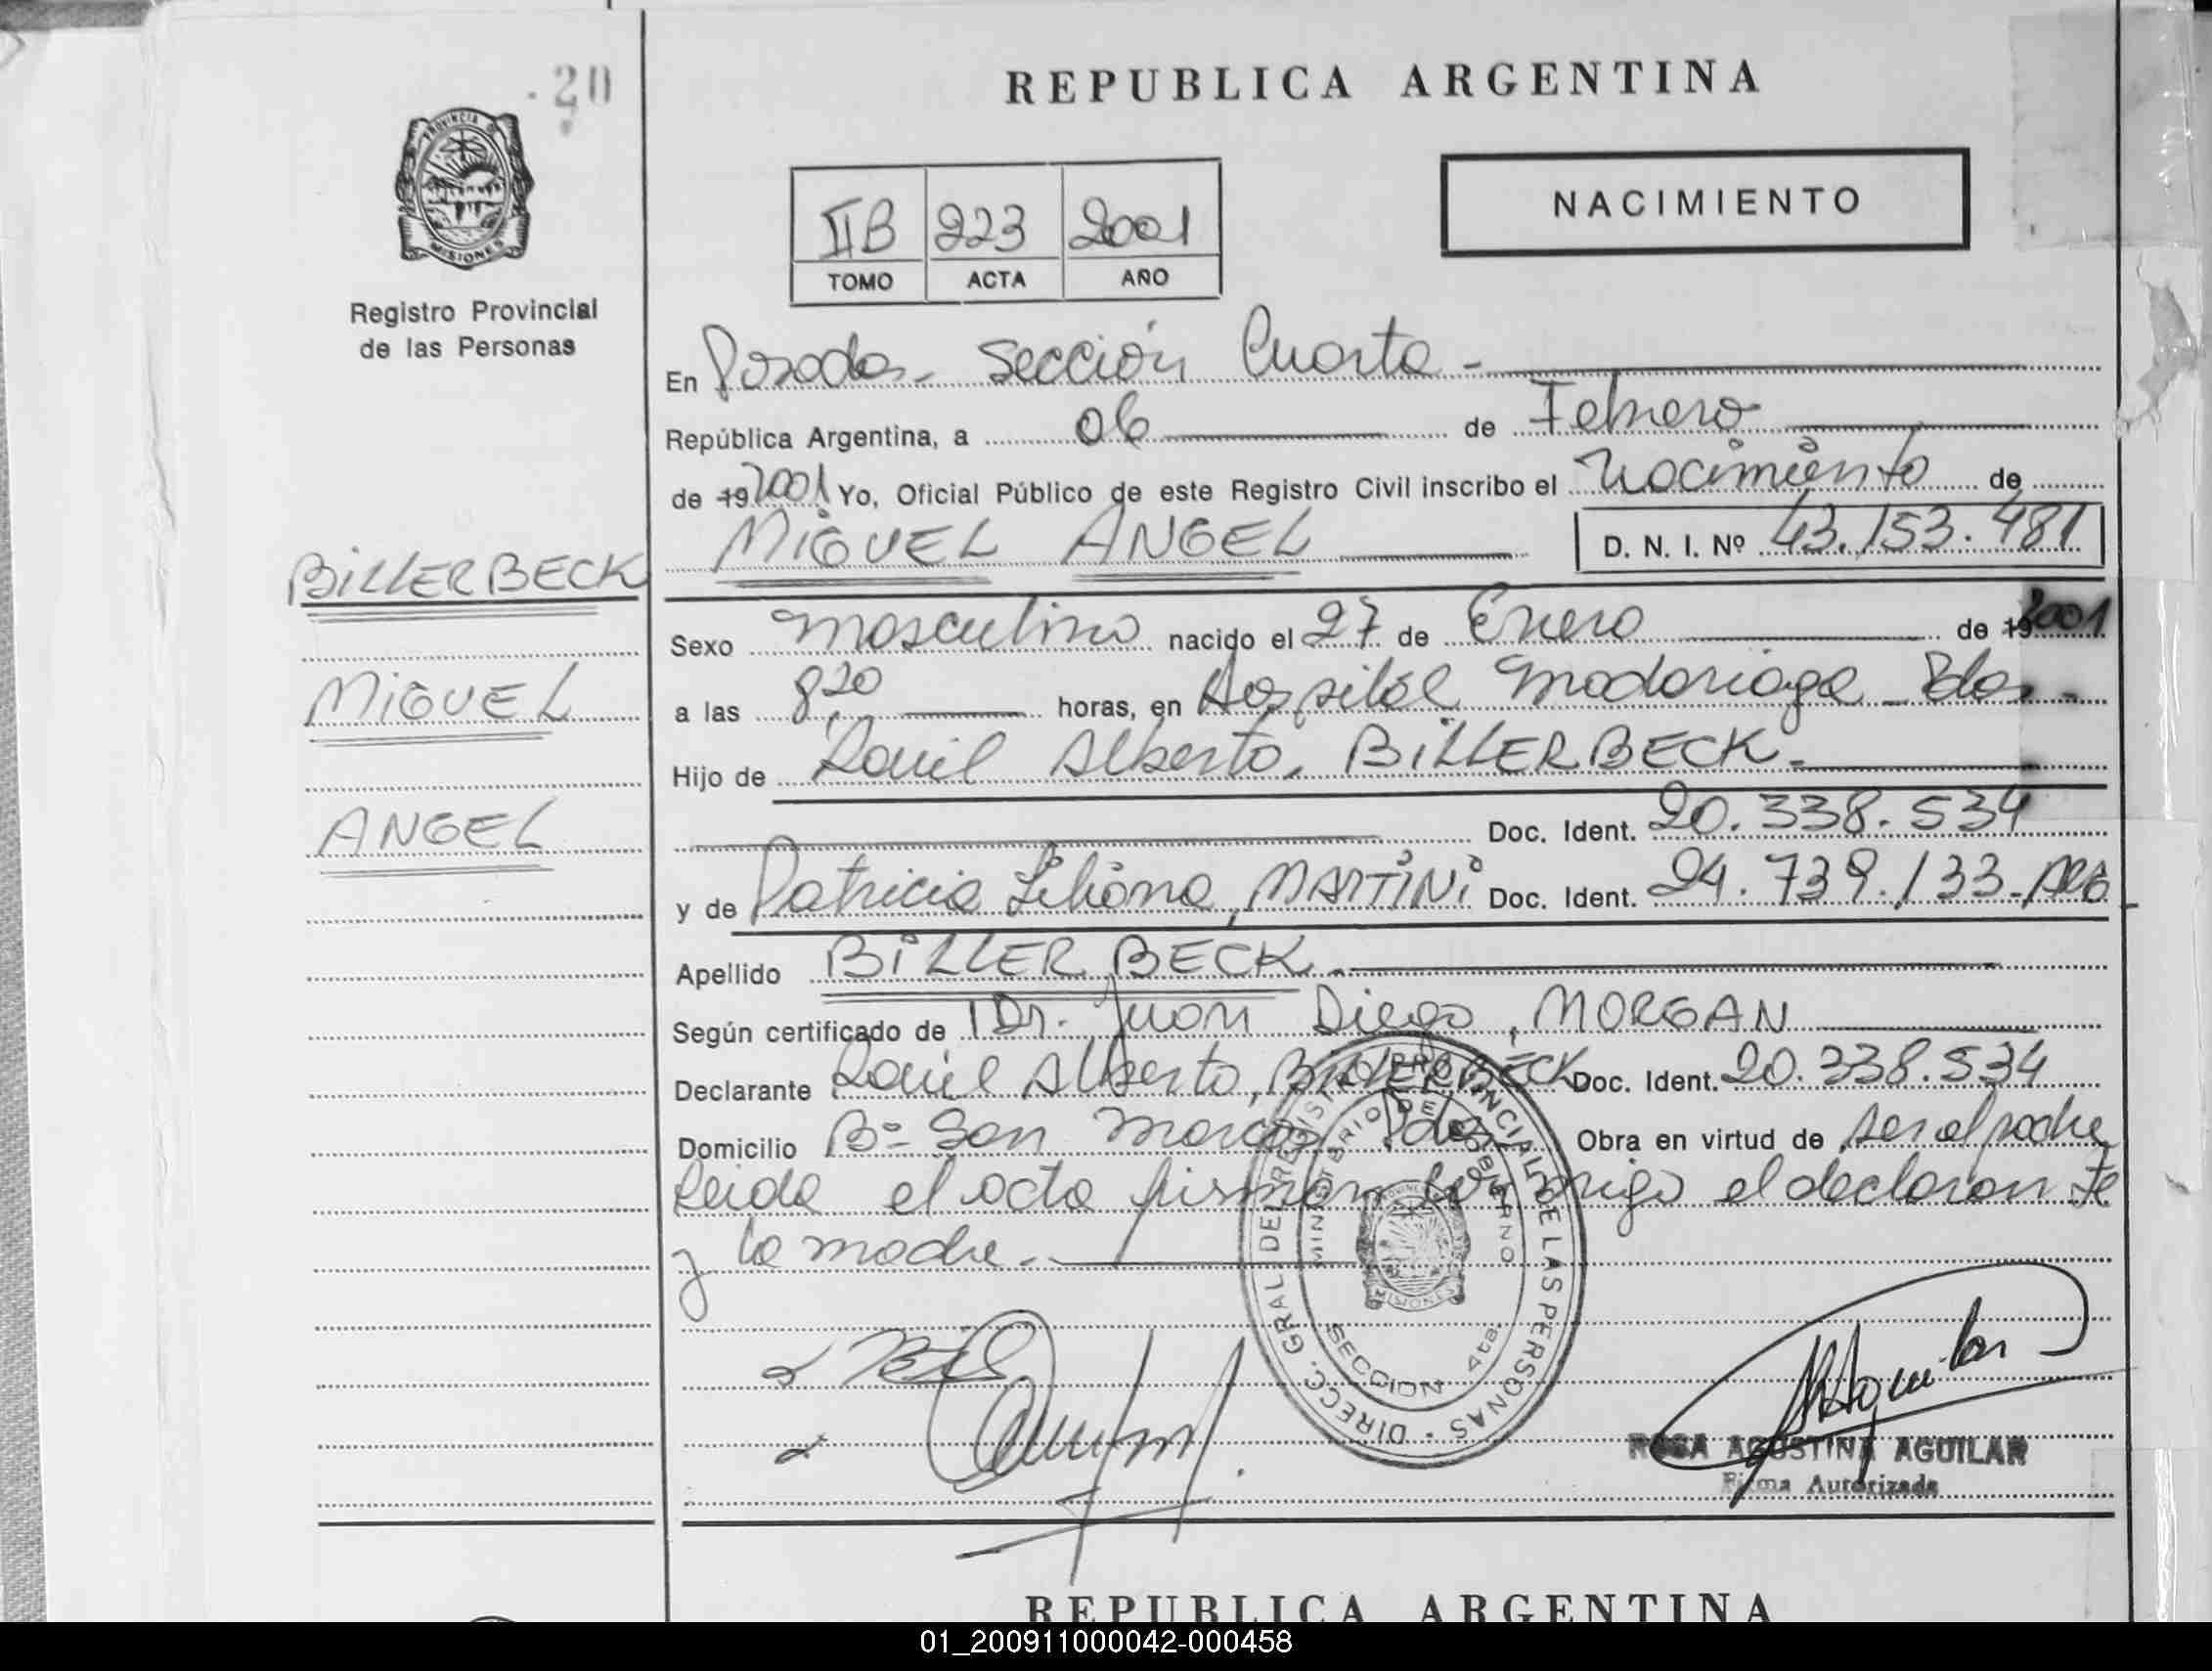 20
PROVINCIA DE
MISIONES
Registro Provincial
de las Personas
BILLERBECK
MIGUEL
ANGEL
REPUBLICA ARGENTINA
IIB 223 2001
TOMO ACTA AÑO
NACIMIENTO
En Posadas - Sección Cuarta -
República Argentina, a 06 de Febrero
de 19 2001 Yo, Oficial Público de este Registro Civil inscribo el Nacimiento de
MIGUEL ANGEL D. N. I. Nº 43.153.481
Sexo masculino nacido el 27 de Enero de 19 2001
a las 8 20 horas, en Hospital Madariaga - Pdas -
Hijo de Raúl Alberto, BILLERBECK -
Doc. Ident. 20.338.534
y de Patricia Liliana, MARTINI Doc. Ident. 24.739.133 - ARG
Apellido BILLERBECK -
Según certificado de Dr. Juan Diego, MORGAN
Declarante Raúl Alberto, BILLERBECK Doc. Ident. 20.338.534
Domicilio Bº San Marcos Pdas Obra en virtud de ser el padre
Leida el acta firman conmigo el declaran te
y la madre -
DIRECC. GRAL DEL REGISTRO PROVINCIAL DE LAS PERSONAS
MINISTERIO DE GOBIERNO
MISIONES
SECCION 4ta.
ROSA AGUSTINA AGUILAR
Firma Autorizada
REPUBLICA ARGENTINA
01_200911000042-000458